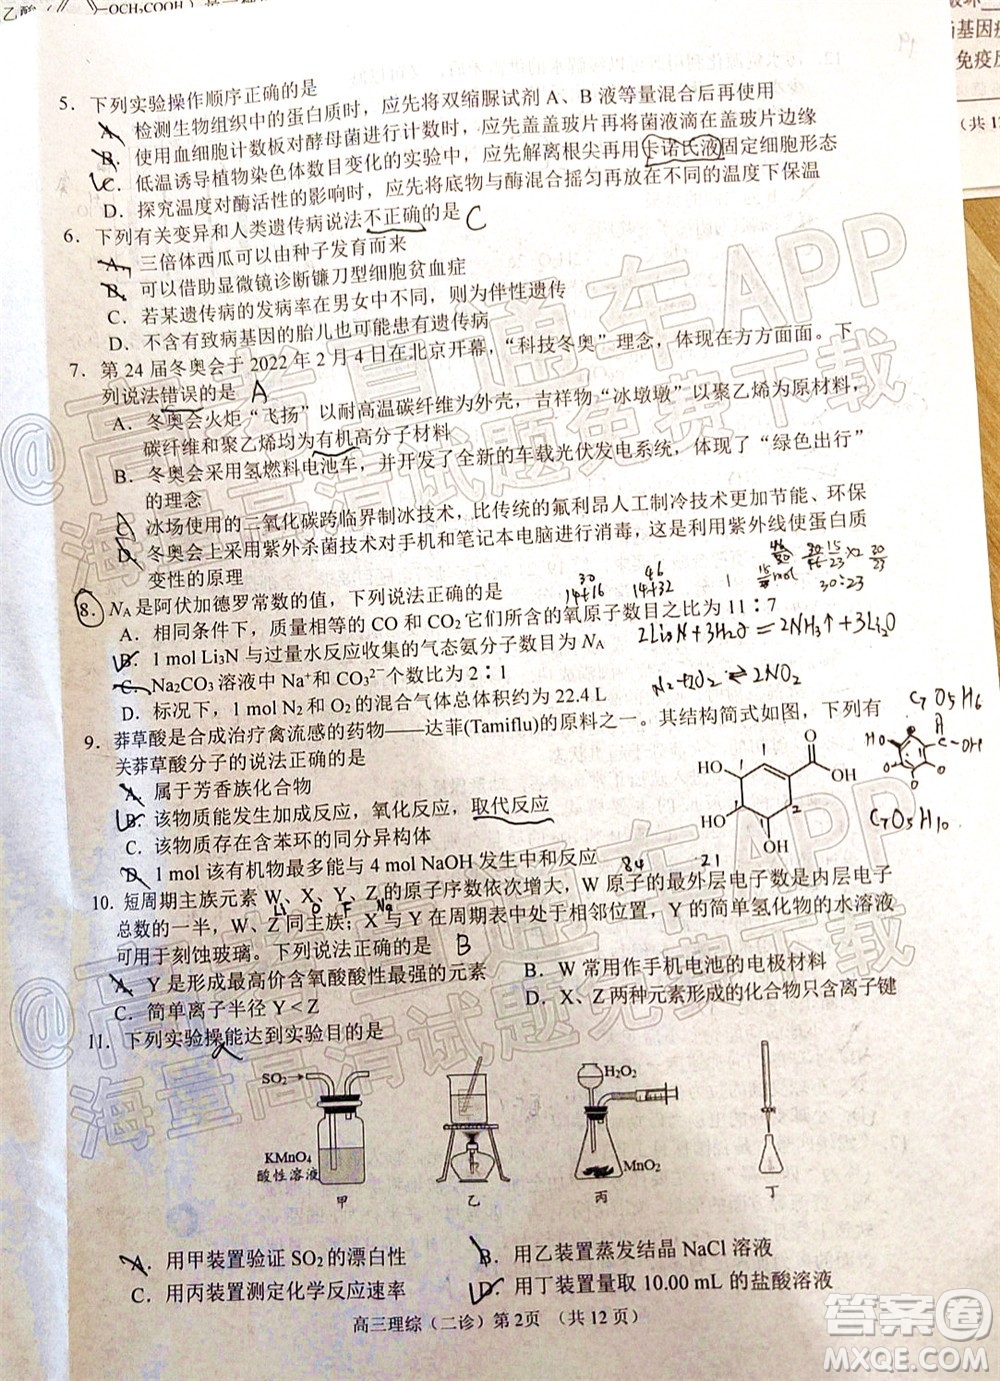 乙酸
-OCH₂COOH)
5．下列实验操作顺序正确的是
A．检测生物组织中的蛋白质时，应先将双缩脲试剂 A、B 液等量混合后再使用
B．使用血细胞计数板对酵母菌进行计数时，应先盖盖玻片再将菌液滴在盖玻片边缘
C．低温诱导植物染色体数目变化的实验中，应先解离根尖再用卡诺氏液固定细胞形态
D．探究温度对酶活性的影响时，应先将底物与酶混合摇匀再放到不同的温度下保温
6．下列有关变异和人类遗传病说法不正确的是 C
A．三倍体西瓜可以由种子发育而来
B．可以借助显微镜诊断镰刀型细胞贫血症
C．若某遗传的发病率在男女中不同，则为伴性遗传
D．不含有致病基因的胎儿也可能患遗传病
7．第 24 届冬奥会于 2022 年 2 月 4 日在北京开幕，“科技冬奥”理念，体现在方方面面。下
列说法错误的是 A
A．冬奥会火炬“飞扬”以耐高温碳纤维为外壳，吉祥物“冰墩墩”以聚乙烯为原料，
碳纤维和聚乙烯均为有机高分子材料
B．冬奥会采用氢燃料电池车，并开发了全新的车载光伏发电系统，体现了“绿色出行”
的理念
C．冰场使用的二氧化碳跨临界制冰技术，比传统的氟利昂人工制冷技术更加节能、环保
D．冬奥会上采用紫外杀菌技术对手机和笔记本电脑进行消毒，利用紫外线使蛋白质
变性的原理
8．NA是阿伏加德罗常数的值，下列说法正确的是
A．相同条件下，质量相等的 CO 和 CO₂ 它们的氧原子数目之比为 11∶7
B．1 mol Li₃N 与过量水反应收集的气态氨分子数目为 NA
2Li₃N+3H₂O=2NH₃↑+3Li₂O
C．Na₂CO₃ 溶液中 Na⁺和 CO₃²⁻个数之比为 2∶1
N₂+2O₂⇌2NO₂
D．标况下，1 mol N₂ 和 O₂ 的混合气体总体积约为 22.4 L
9．莽草酸是合成治疗禽流感的药物——达菲(Tamiflu)的原料之一。其结构简式如图，下列有
关莽草酸分子的说法正确的是
A．属于芳香族化合物
B．该物质能发生加成反应，氧化反应，取代反应
C．该物质存在含苯环的同分异构体
D．1 mol 该有机物最多能与 4 mol NaOH 发生中和反应
O
OH
HO
HO
OH
C₇O₅H₆
C₇O₅H₁₀
10. 短周期主族元素 W、X、Y、Z 的原子序数依次增大，W 原子的最外层电子数是内层电子
总数的一半，W、Z 同主族；X 与 Y 在周期表中处于相邻位置，Y 的简单氢化物的水溶液
Li O F Na
可用于刻蚀玻璃。下列说法正确的是 B
A．Y 是形成最高价含氧酸酸性最强的元素
B．W 常用作手机电池的电极材料
C．简单离子半径 Y < Z
D．X、Z 两种元素形成的化合物只含离子键
11．下列实验操能达到实验目的是
SO₂
KMnO₄
酸性溶液
甲
乙
H₂O₂
MnO₂
丙
丁
A．用甲装置验证 SO₂ 的漂白性
B．用乙装置蒸发结晶 NaCl 溶液
C．用丙装置测定化学反应速率
D．用丁装置量取 10.00 mL 的盐酸溶液
高三理综（二诊）第 2页 （共 12 页）
基因
免疫反
（共 1
@高考直通车APP
海量高清试题免费下载
@高考直通车APP
海量高清试题免费下载
答案圈
MXQE.COM